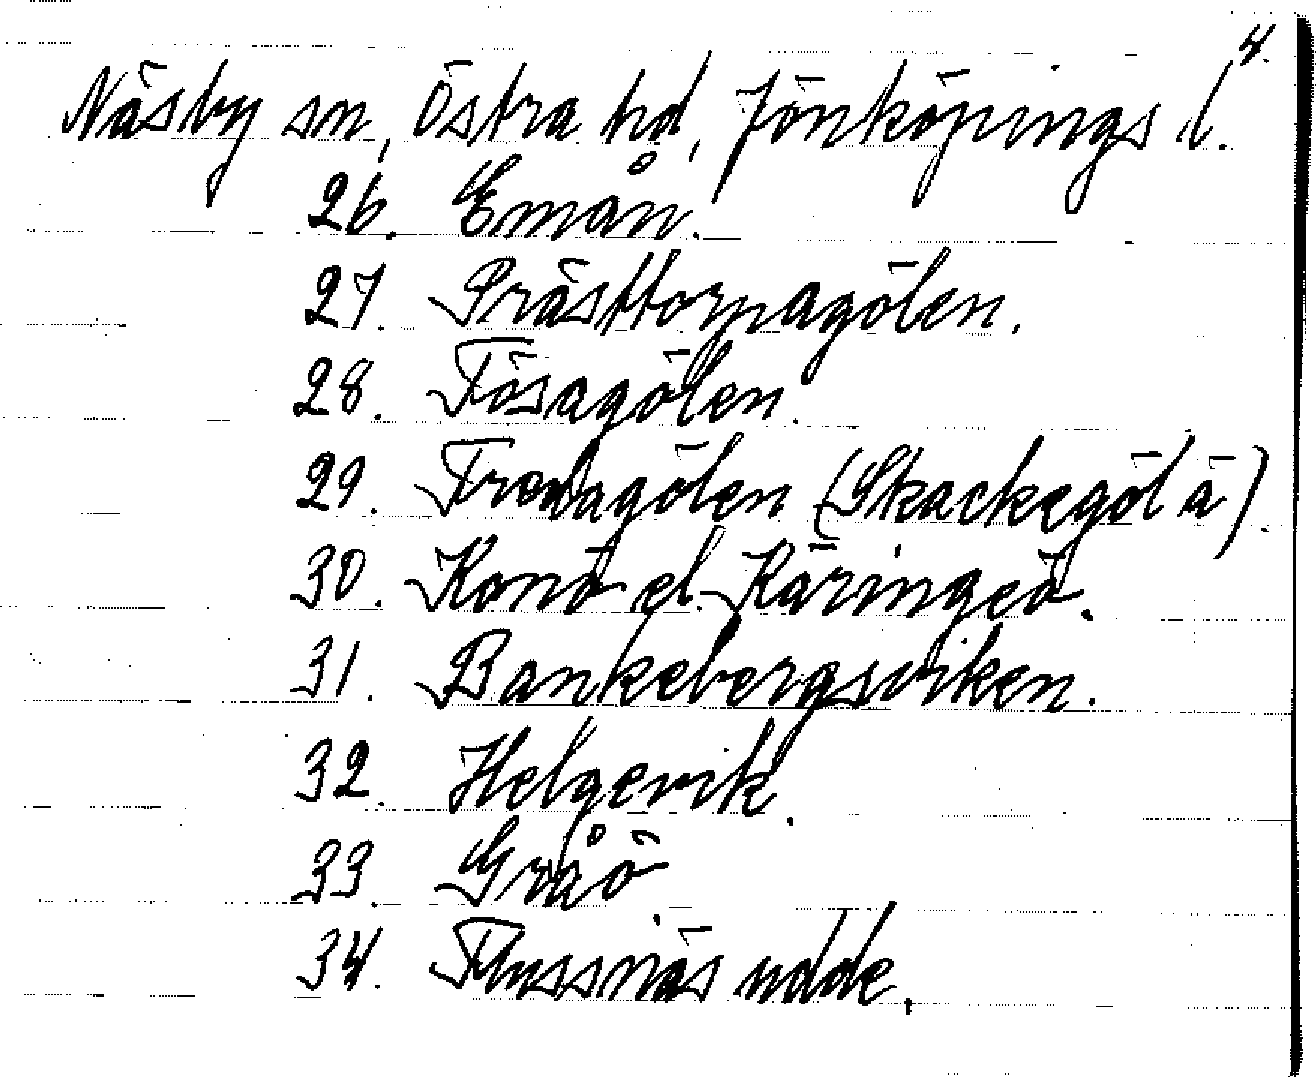 4.
Näsby sn, Östra hd, Jönköpings l.
26. Emån.
27. Prästtorpagölen.
28. Fösagölen.
29. (Skackegöl ä).
30. Konö el. Käringeö.
31. Bankebergsviken.
32. Helgevik.
33. Gråö.
34. udde.